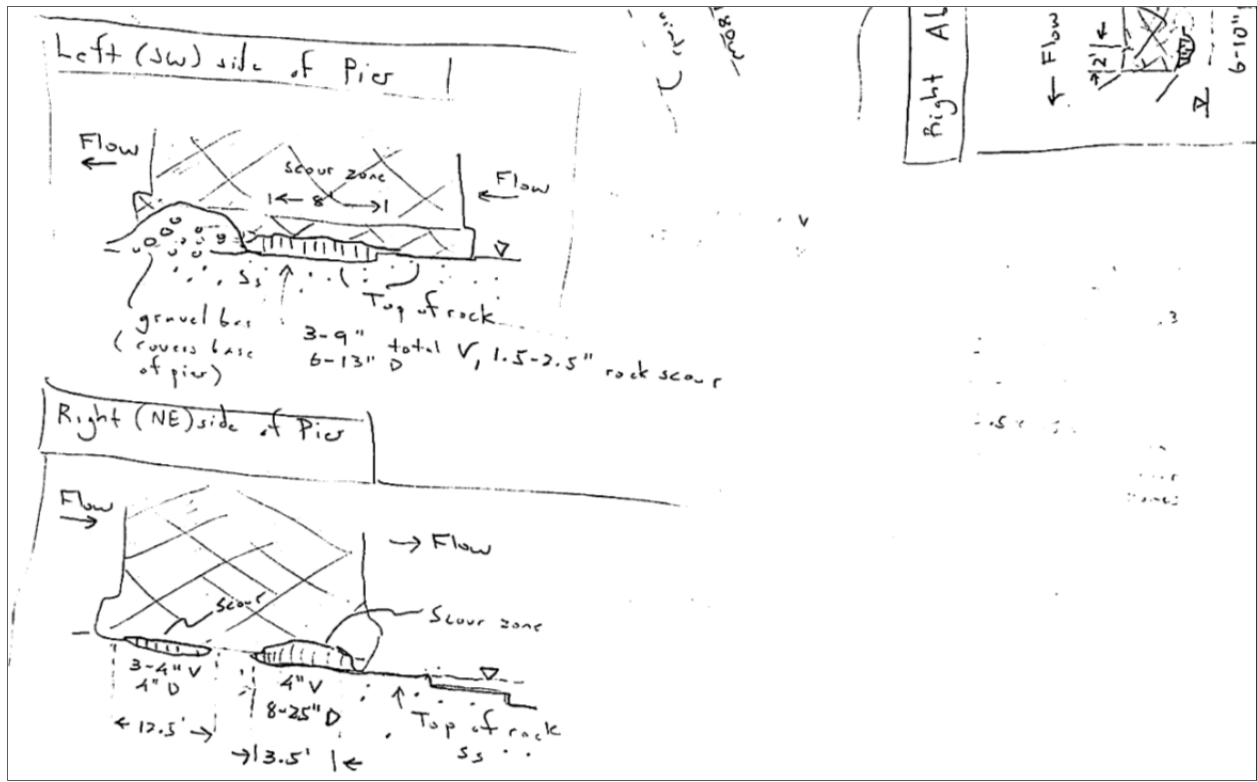 Left (SW) side of Pier
Flow
scour zone
8'
Flow
Ss
Top of rock
gravel bar
(covers base
of pier)
3-9" total V, 1.5-2.5" rock scour
6-13" D
Right (NE) side of Pier
Flow
Flow
Scour
Scour zone
3-4" V
4" D
4" V
8-25" D
12.5'
3.5'
Top of rock
Ss
Right
Flow
2'
6-10"